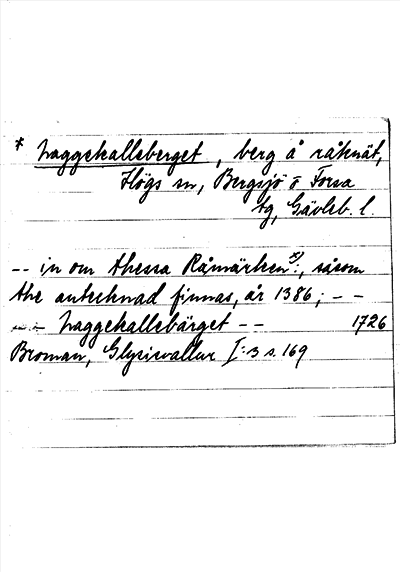 * Naggekalleberget, berg å råknät,
Högs sn, Bergsjö o Forsa
tg, Gävleb. l.
-- in om thessa Råmärken :, såsom
the antecknad finnas, år 1386; - -
- - Naggekallebärget - - 1726
Broman, Glysisvallur I:3 s. 169